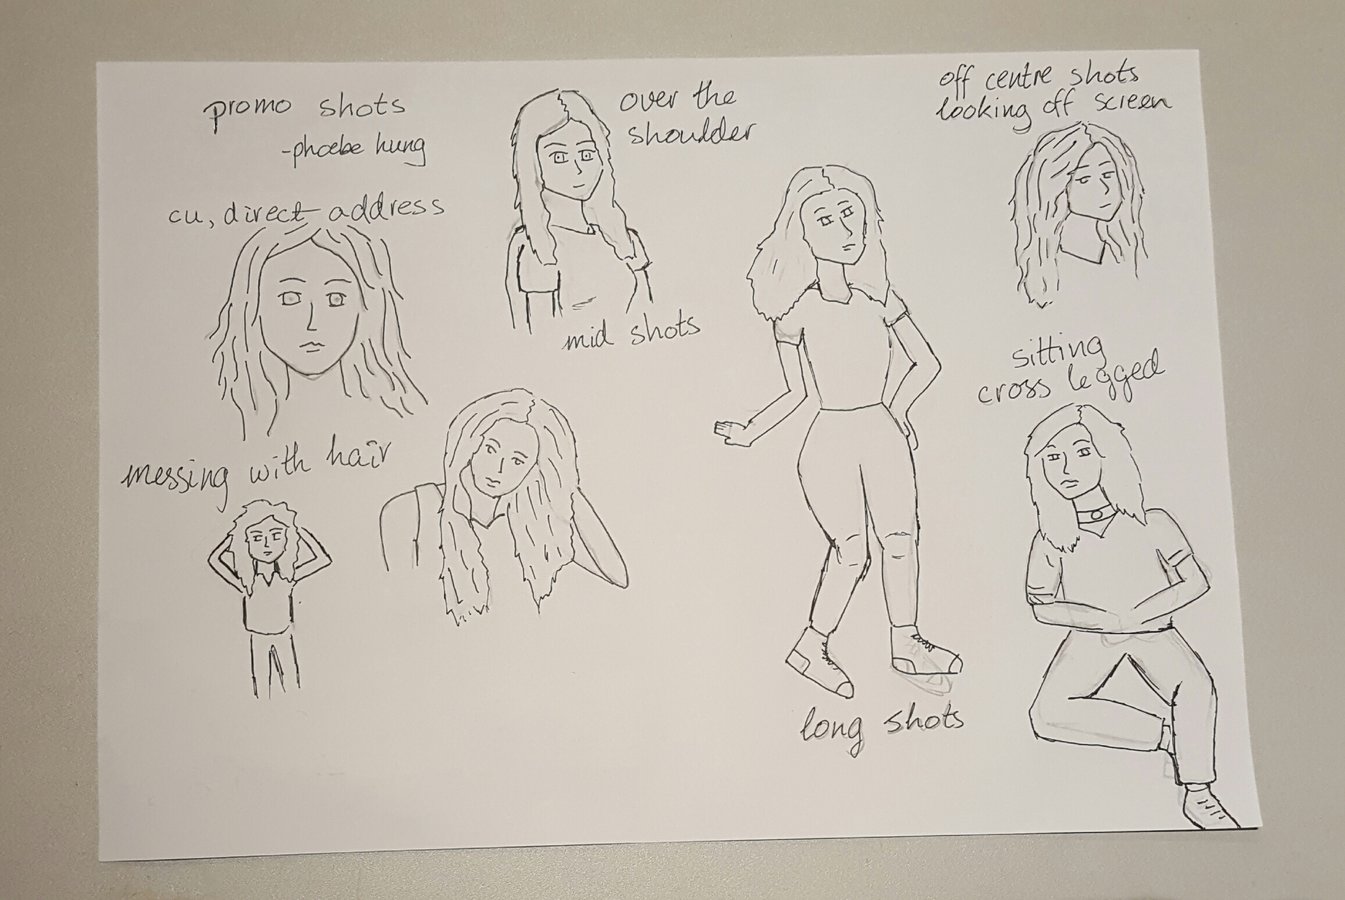 promo shots
-phoebe hung
cu, direct address
over the
shoulder
mid shots
messing with hair
long shots
off centre shots
looking off screen
sitting
cross legged